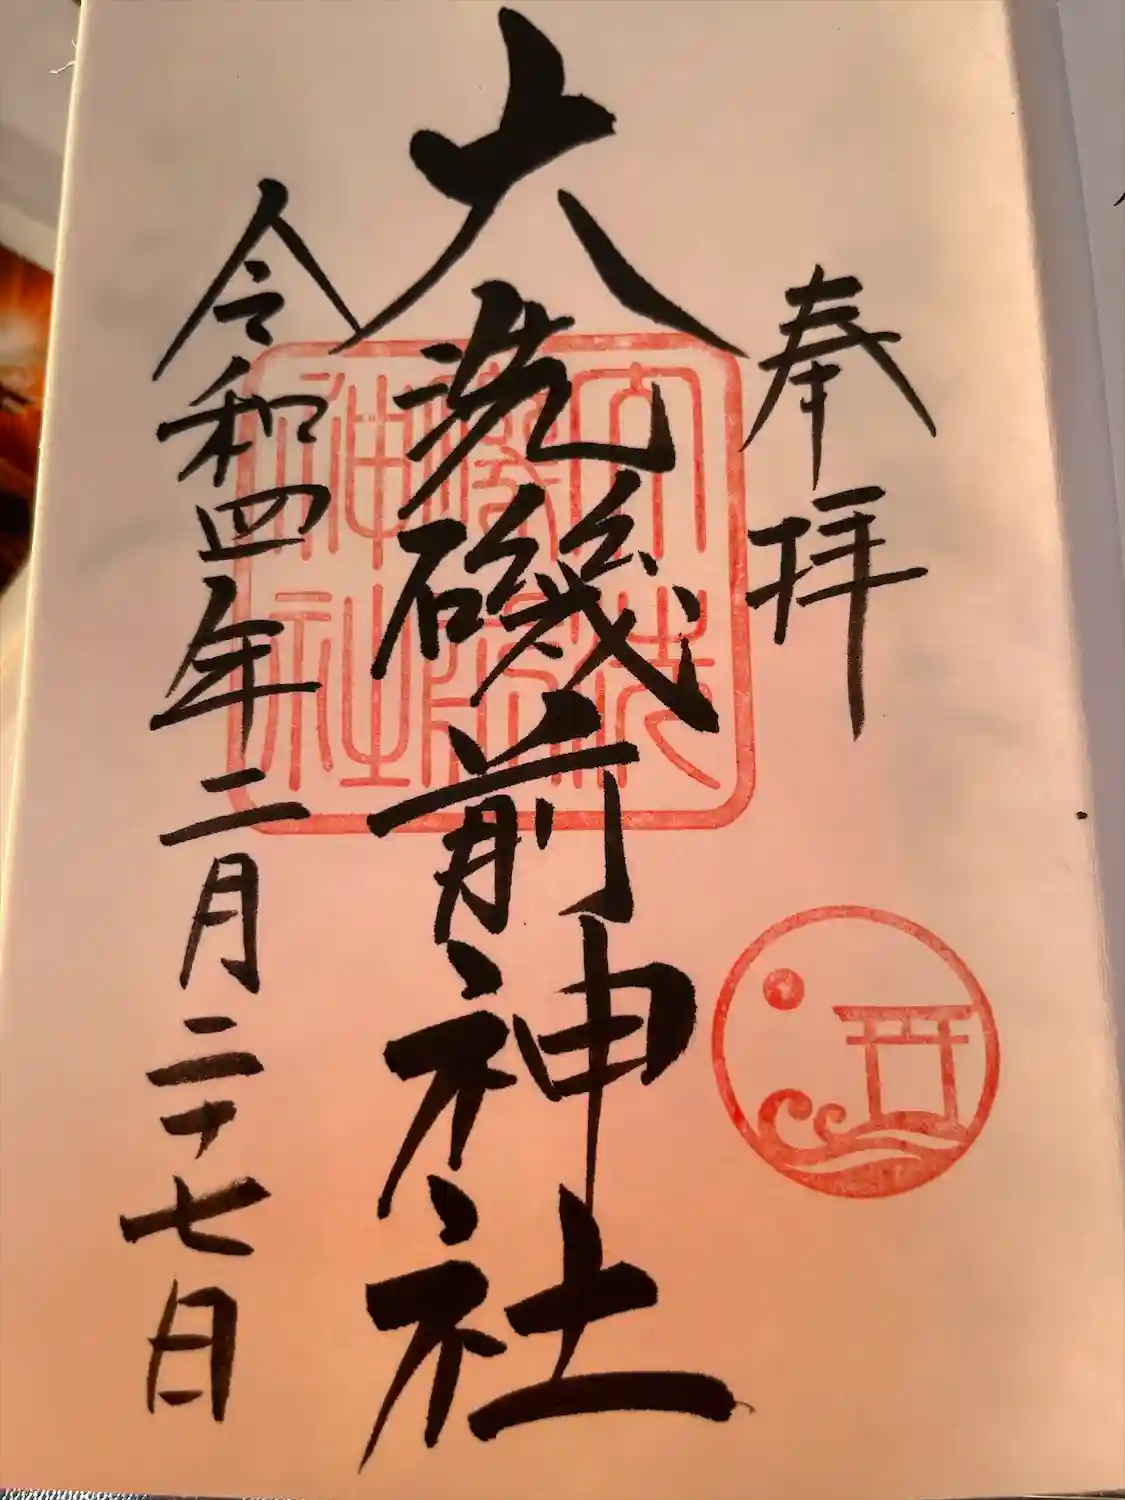 奉拝
大洗磯前神社
令和四年二月二十七日
大洗
磯前
神社